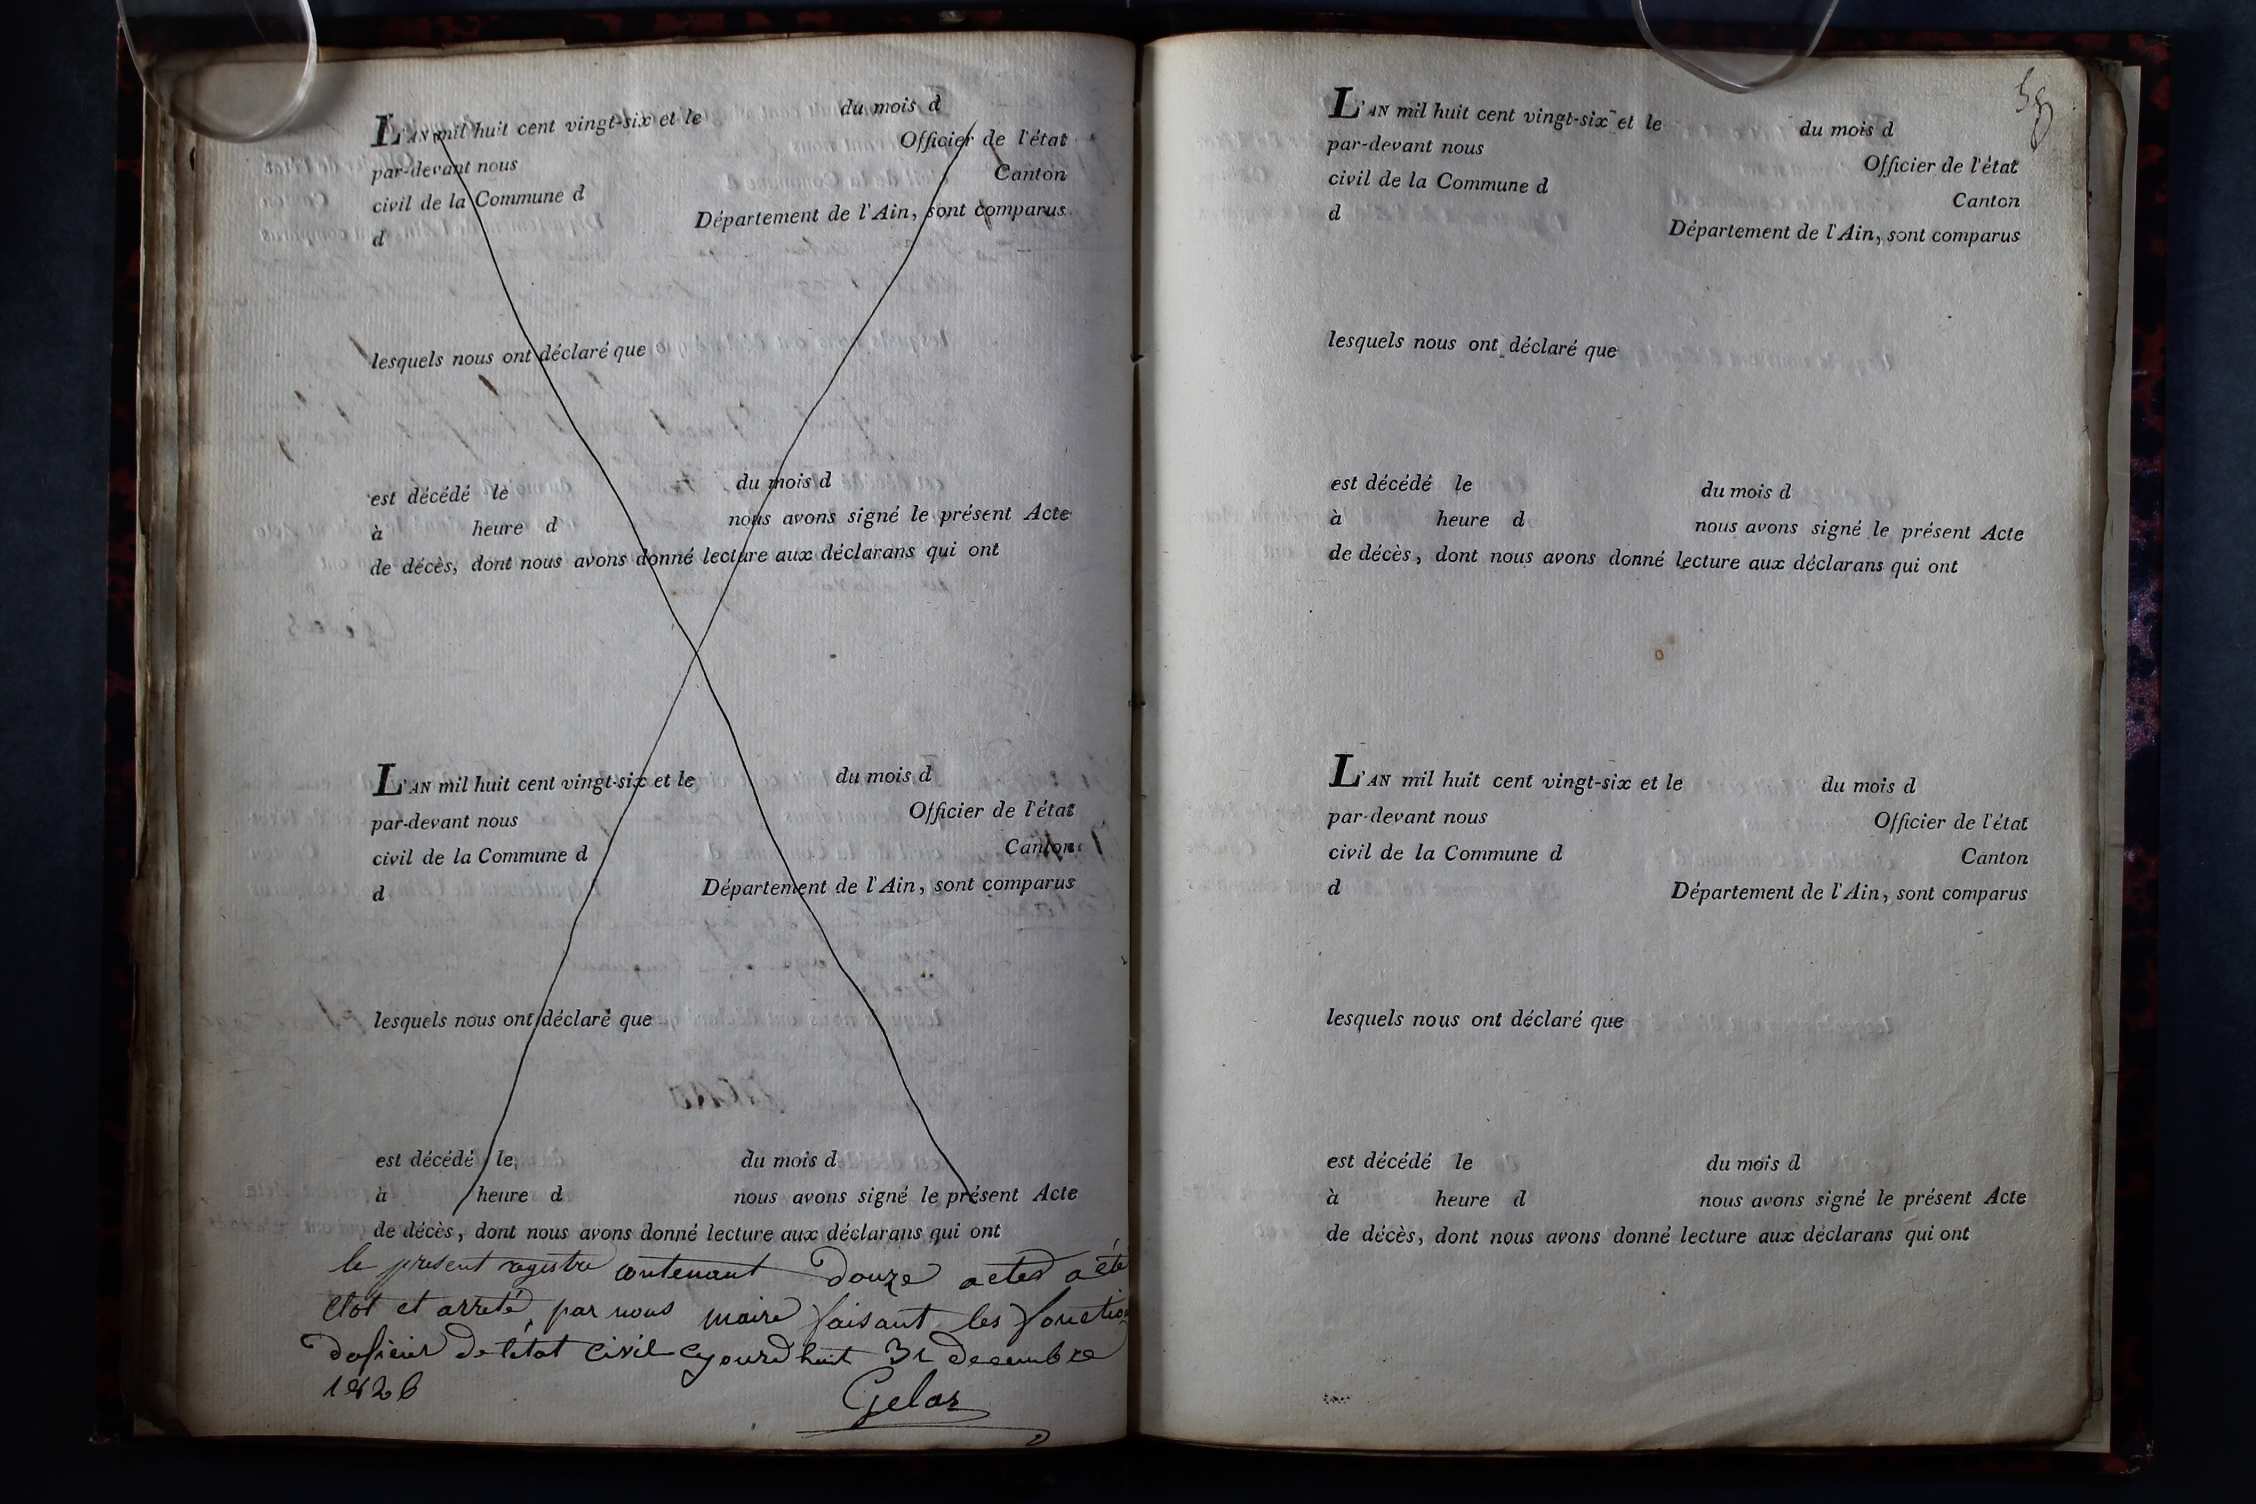 L'AN mil huit cent vingt-six et le du mois d
par-devant nous Officier de l'état
civil de la Commune d Canton
d Département de l'Ain, sont comparus
lesquels nous ont déclaré que
est décédé le du mois d
à heure d nous avons signé le présent Acte
de décès, dont nous avons donné lecture aux déclarans qui ont
L'AN mil huit cent vingt-six et le du mois d
par-devant nous Officier de l'état
civil de la Commune d Canton
d Département de l'Ain, sont comparus
lesquels nous ont déclaré que
est décédé le du mois d
à heure d nous avons signé le présent Acte
de décès, dont nous avons donné lecture aux déclarans qui ont
le present registre contenant douze actes a été
clot et arreté par nous maire faisant les fonction
doficier de l'état civil cejourdhuit 31 decembre
1826
Gelas
L'AN mil huit cent vingt-six et le du mois d
par-devant nous Officier de l'état
civil de la Commune d Canton
d Département de l'Ain, sont comparus
lesquels nous ont déclaré que
est décédé le du mois d
à heure d nous avons signé le présent Acte
de décès, dont nous avons donné lecture aux déclarans qui ont
L'AN mil huit cent vingt-six et le du mois d
par-devant nous Officier de l'état
civil de la Commune d Canton
d Département de l'Ain, sont comparus
lesquels nous ont déclaré que
est décédé le du mois d
à heure d nous avons signé le présent Acte
de décès, dont nous avons donné lecture aux déclarans qui ont